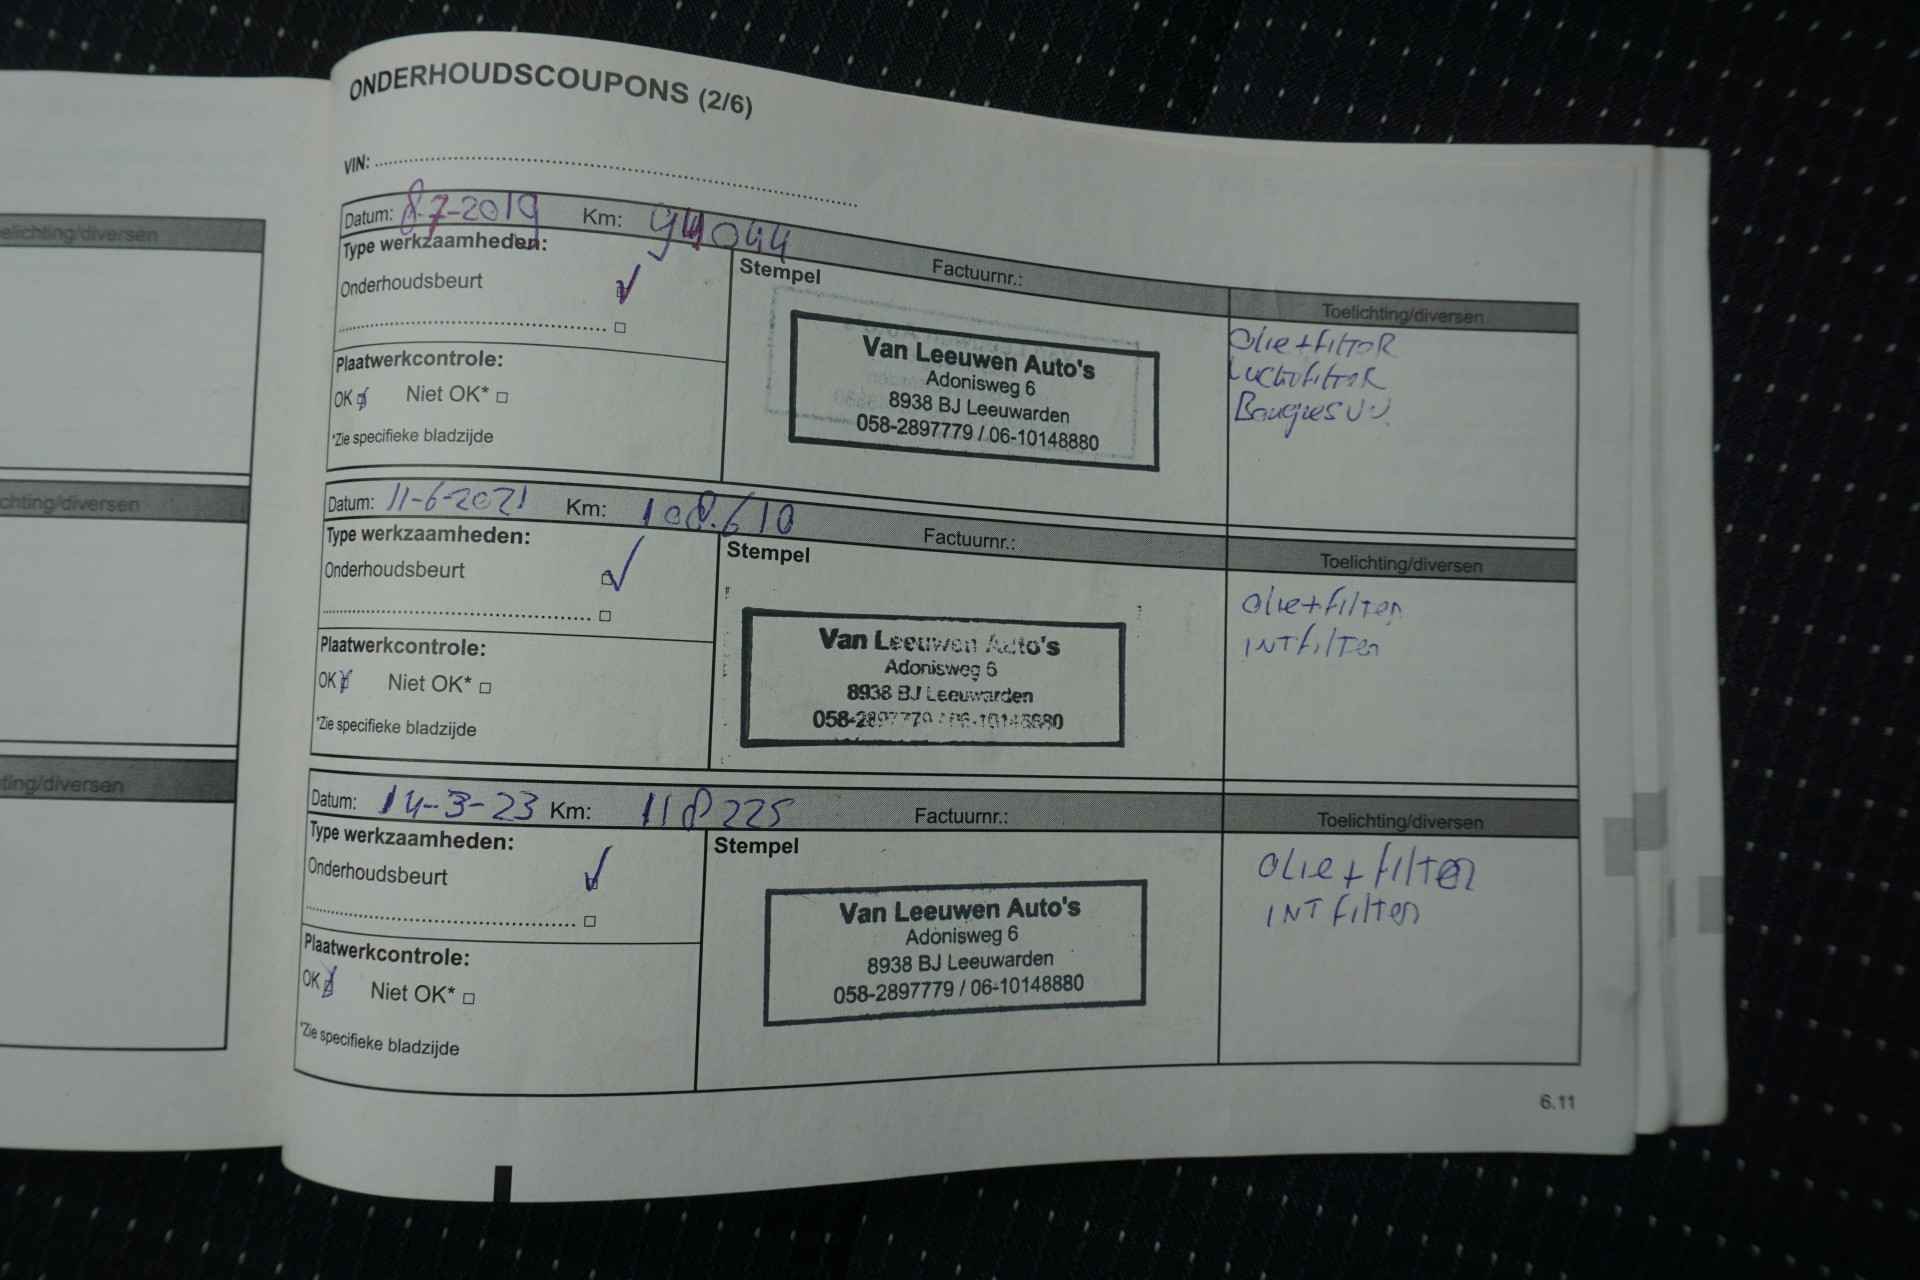 elichting/diversen
chting/diversen
ting/diversen
ONDERHOUDSCOUPONS (2/6)
VIN:
Datum: 8-7-2019 Km: 94044
Factuurnr.:
Type werkzaamheden:
Stempel
Toelichting/diversen
Onderhoudsbeurt
Plaatwerkcontrole:
OK Niet OK*
*Zie specifieke bladzijde
Van Leeuwen Auto's
Adonisweg 6
8938 BJ Leeuwarden
058-2897779 / 06-10148880
Olie+filtoR
Luchtfiltor
Bougies VV.
Datum: 11-6-2021 Km: 108.610
Factuurnr.:
Type werkzaamheden:
Stempel
Toelichting/diversen
Onderhoudsbeurt
Plaatwerkcontrole:
OK Niet OK*
*Zie specifieke bladzijde
Van Leeuwen Auto's
Adonisweg 6
8938 BJ Leeuwarden
058-2897779 / 06-10148880
Olie+filter
INTfilter
Datum: 14-3-23 Km: 118225
Factuurnr.:
Type werkzaamheden:
Stempel
Toelichting/diversen
Onderhoudsbeurt
Plaatwerkcontrole:
OK Niet OK*
*Zie specifieke bladzijde
Van Leeuwen Auto's
Adonisweg 6
8938 BJ Leeuwarden
058-2897779 / 06-10148880
Olie+filter
INT filter
6.11